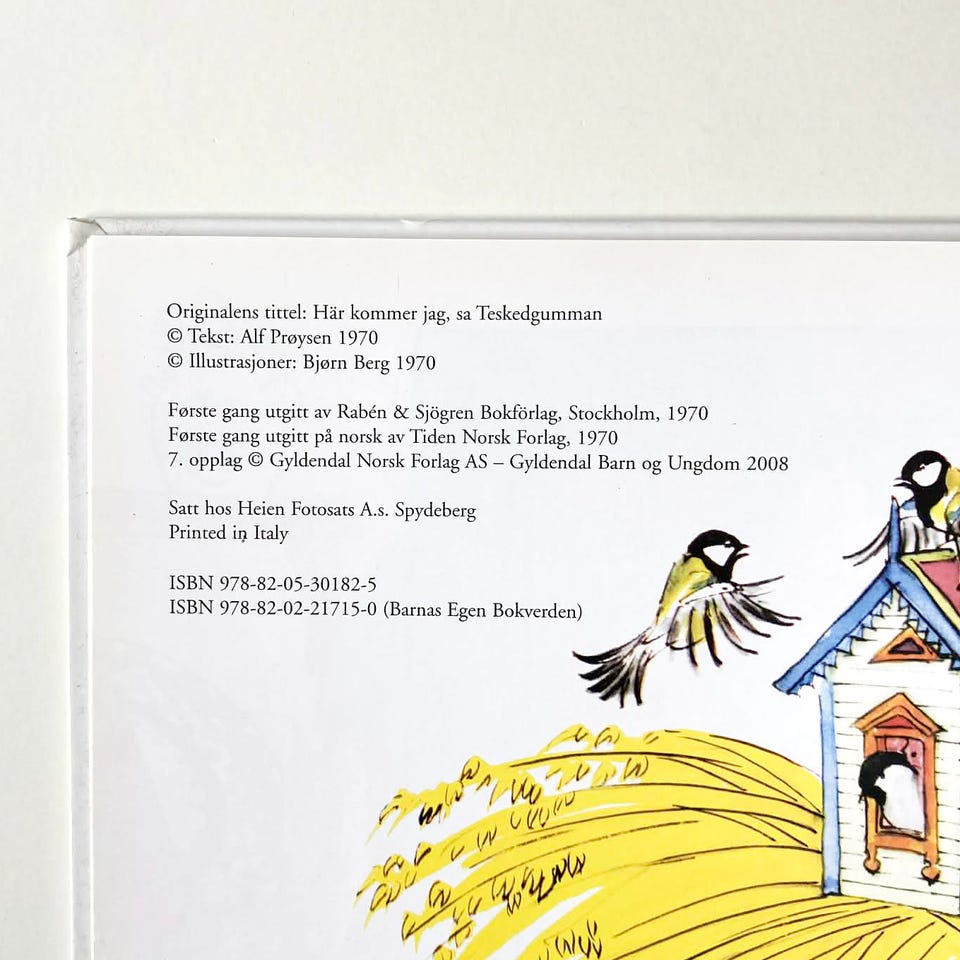 Originalens tittel: Här kommer jag, sa Teskedgumman
© Tekst: Alf Prøysen 1970
© Illustrasjoner: Bjørn Berg 1970
Første gang utgitt av Rabén & Sjögren Bokförlag, Stockholm, 1970
Første gang utgitt på norsk av Tiden Norsk Forlag, 1970
7. opplag © Gyldendal Norsk Forlag AS – Gyldendal Barn og Ungdom 2008
Satt hos Heien Fotosats A.s. Spydeberg
Printed in Italy
ISBN 978-82-05-30182-5
ISBN 978-82-02-21715-0 (Barnas Egen Bokverden)